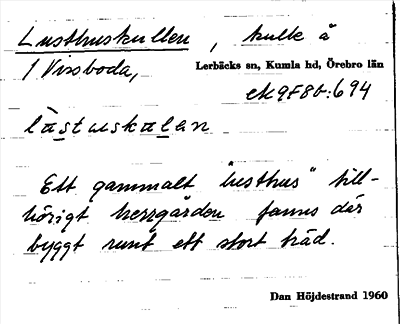 Lusthuskullen, kulle å
f Vissboda,
Lerbäcks sn, Kumla hd, Örebro län
ek 9F8b:694
Ett gammalt "lusthus" till-
hörigt herrgården fanns där
byggt runt ett stort träd.
Dan Höjdestrand 1960